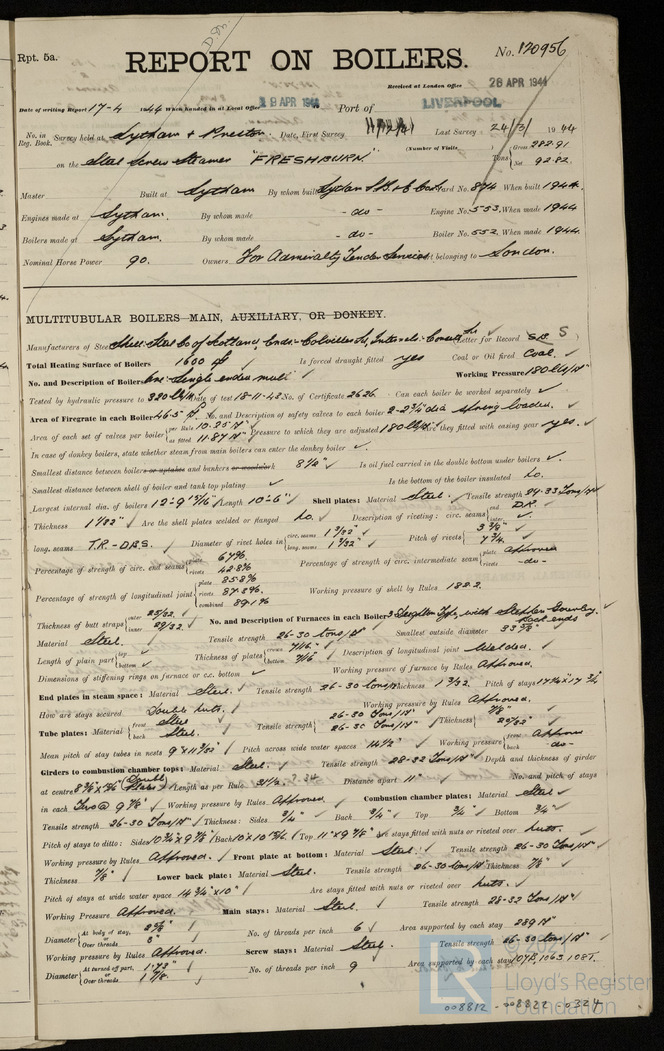 Rpt. 5a.
REPORT ON BOILERS.
No. 120956
Received at London Office 28 APR 1944
Date of writing Report 17-4 1944 When handed in at Local Office 19 APR 1944 Port of LIVERPOOL
No. in Reg. Book. Survey held at Lytham & Preston. Date, First Survey Last Survey 24/3/1944
(Number of Visits
on the Steel Screw Steamer "FRESHBURN" Tons Gross 282.91 Net 92.82
Master Built at Lytham By whom built Yard No. 874 When built 1944.
Engines made at Lytham. By whom made - do - Engine No. 553. When made 1944
Boilers made at Lytham. By whom made - do - Boiler No. 552 When made 1944.
Nominal Horse Power 90. Owners For Admiralty Tender Service Port belonging to London.
MULTITUBULAR BOILERS MAIN, AUXILIARY, OR DONKEY.
Manufacturers of Steel Letter for Record S
Total Heating Surface of Boilers 1600 Is forced draught fitted yes Coal or Oil fired Coal.
No. and Description of Boilers One Single ended multi Working Pressure 180
Tested by hydraulic pressure to 320 Date of test 18-11-43 No. of Certificate 2626. Can each boiler be worked separately ✓
Area of Firegrate in each Boiler 46.5 No. and Description of safety valves to each boiler 2-2¾ dia spring loaded.
Area of each set of valves per boiler per Rule 10.25 as fitted 11.87 Pressure to which they are adjusted 180 Are they fitted with easing gear yes.
In case of donkey boilers, state whether steam from main boilers can enter the donkey boiler ✓.
Smallest distance between boilers or uptakes and bunkers or woodwork 8½" Is oil fuel carried in the double bottom under boilers ✓.
Smallest distance between shell of boiler and tank top plating Is the bottom of the boiler insulated No.
Largest internal dia. of boilers 12'-9 15/16" Length 10'-6" Shell plates: Material Steel. Tensile strength 29-33 Tons/
Thickness 1 1/32" Are the shell plates welded or flanged No. Description of riveting: circ. seams end D.R. inter. ✓
long. seams T.R. - D.B.S. Diameter of rivet holes in circ. seams 1 3/32" long. seams 1 3/32 Pitch of rivets 3¾" 7¾
Percentage of strength of circ. end seams plate 67%. rivets 42.8% Percentage of strength of circ. intermediate seam plate Approved rivets - do -
Percentage of strength of longitudinal joint plate 85.8% rivets 87.2% combined 89.1% Working pressure of shell by Rules 182.2.
Thickness of butt straps outer 25/32 inner 29/32 No. and Description of Furnaces in each Boiler 2 Deighton Type with Stephen Gourley back ends
Material Steel. Tensile strength 26-30 tons/ Smallest outside diameter 33
Length of plain part top bottom Thickness of plates crown 7/16" bottom 7/16 Description of longitudinal joint Welded.
Dimensions of stiffening rings on furnace or c.c. bottom ✓ Working pressure of furnace by Rules Approved.
End plates in steam space: Material Steel. Tensile strength 26-30 tons/ Thickness 1 3/32. Pitch of stays
How are stays secured Double nuts. Working pressure by Rules Approved.
Tube plates: Material front Steel back Steel. Tensile strength 26-30 Tons/ 26-30 Tons/ Thickness 7/8" 25/32
Mean pitch of stay tubes in nests 9 x 11 3/32 Pitch across wide water spaces 14½" Working pressure front Approved back - do -
Girders to combustion chamber tops: Material Steel. Tensile strength 28-32 Tons/ Depth and thickness of girder
at centre Length as per Rule Distance apart 11" No. and pitch of stays
in each Two @ 9 7/8" Working pressure by Rules Approved. Combustion chamber plates: Material Steel
Tensile strength 26-30 Tons/ Thickness: Sides ¾" Back ¾" Top ¾" Bottom ¾"
Pitch of stays to ditto: Sides 10¾ x 9 7/8 Back Top 11" x 9 7/8 Are stays fitted with nuts or riveted over nuts.
Working pressure by Rules Approved. Front plate at bottom: Material Steel. Tensile strength 26-30 Tons/
Thickness 7/8" Lower back plate: Material Steel. Tensile strength 26-30 Tons/ Thickness 7/8"
Pitch of stays at wide water space 14¾" x 10" Are stays fitted with nuts or riveted over nuts.
Working Pressure Approved. Main stays: Material Steel. Tensile strength 28-32 Tons/
Diameter At body of stay, or Over threads No. of threads per inch 6 Area supported by each stay 289
Working pressure by Rules Approved. Screw stays: Material Steel. Tensile strength 26-30 tons/
Diameter At turned off part, or Over threads No. of threads per inch 9 Area supported by each stay
© 2021
LR
Lloyd's Register
Foundation
008812 - 008822 - 0324